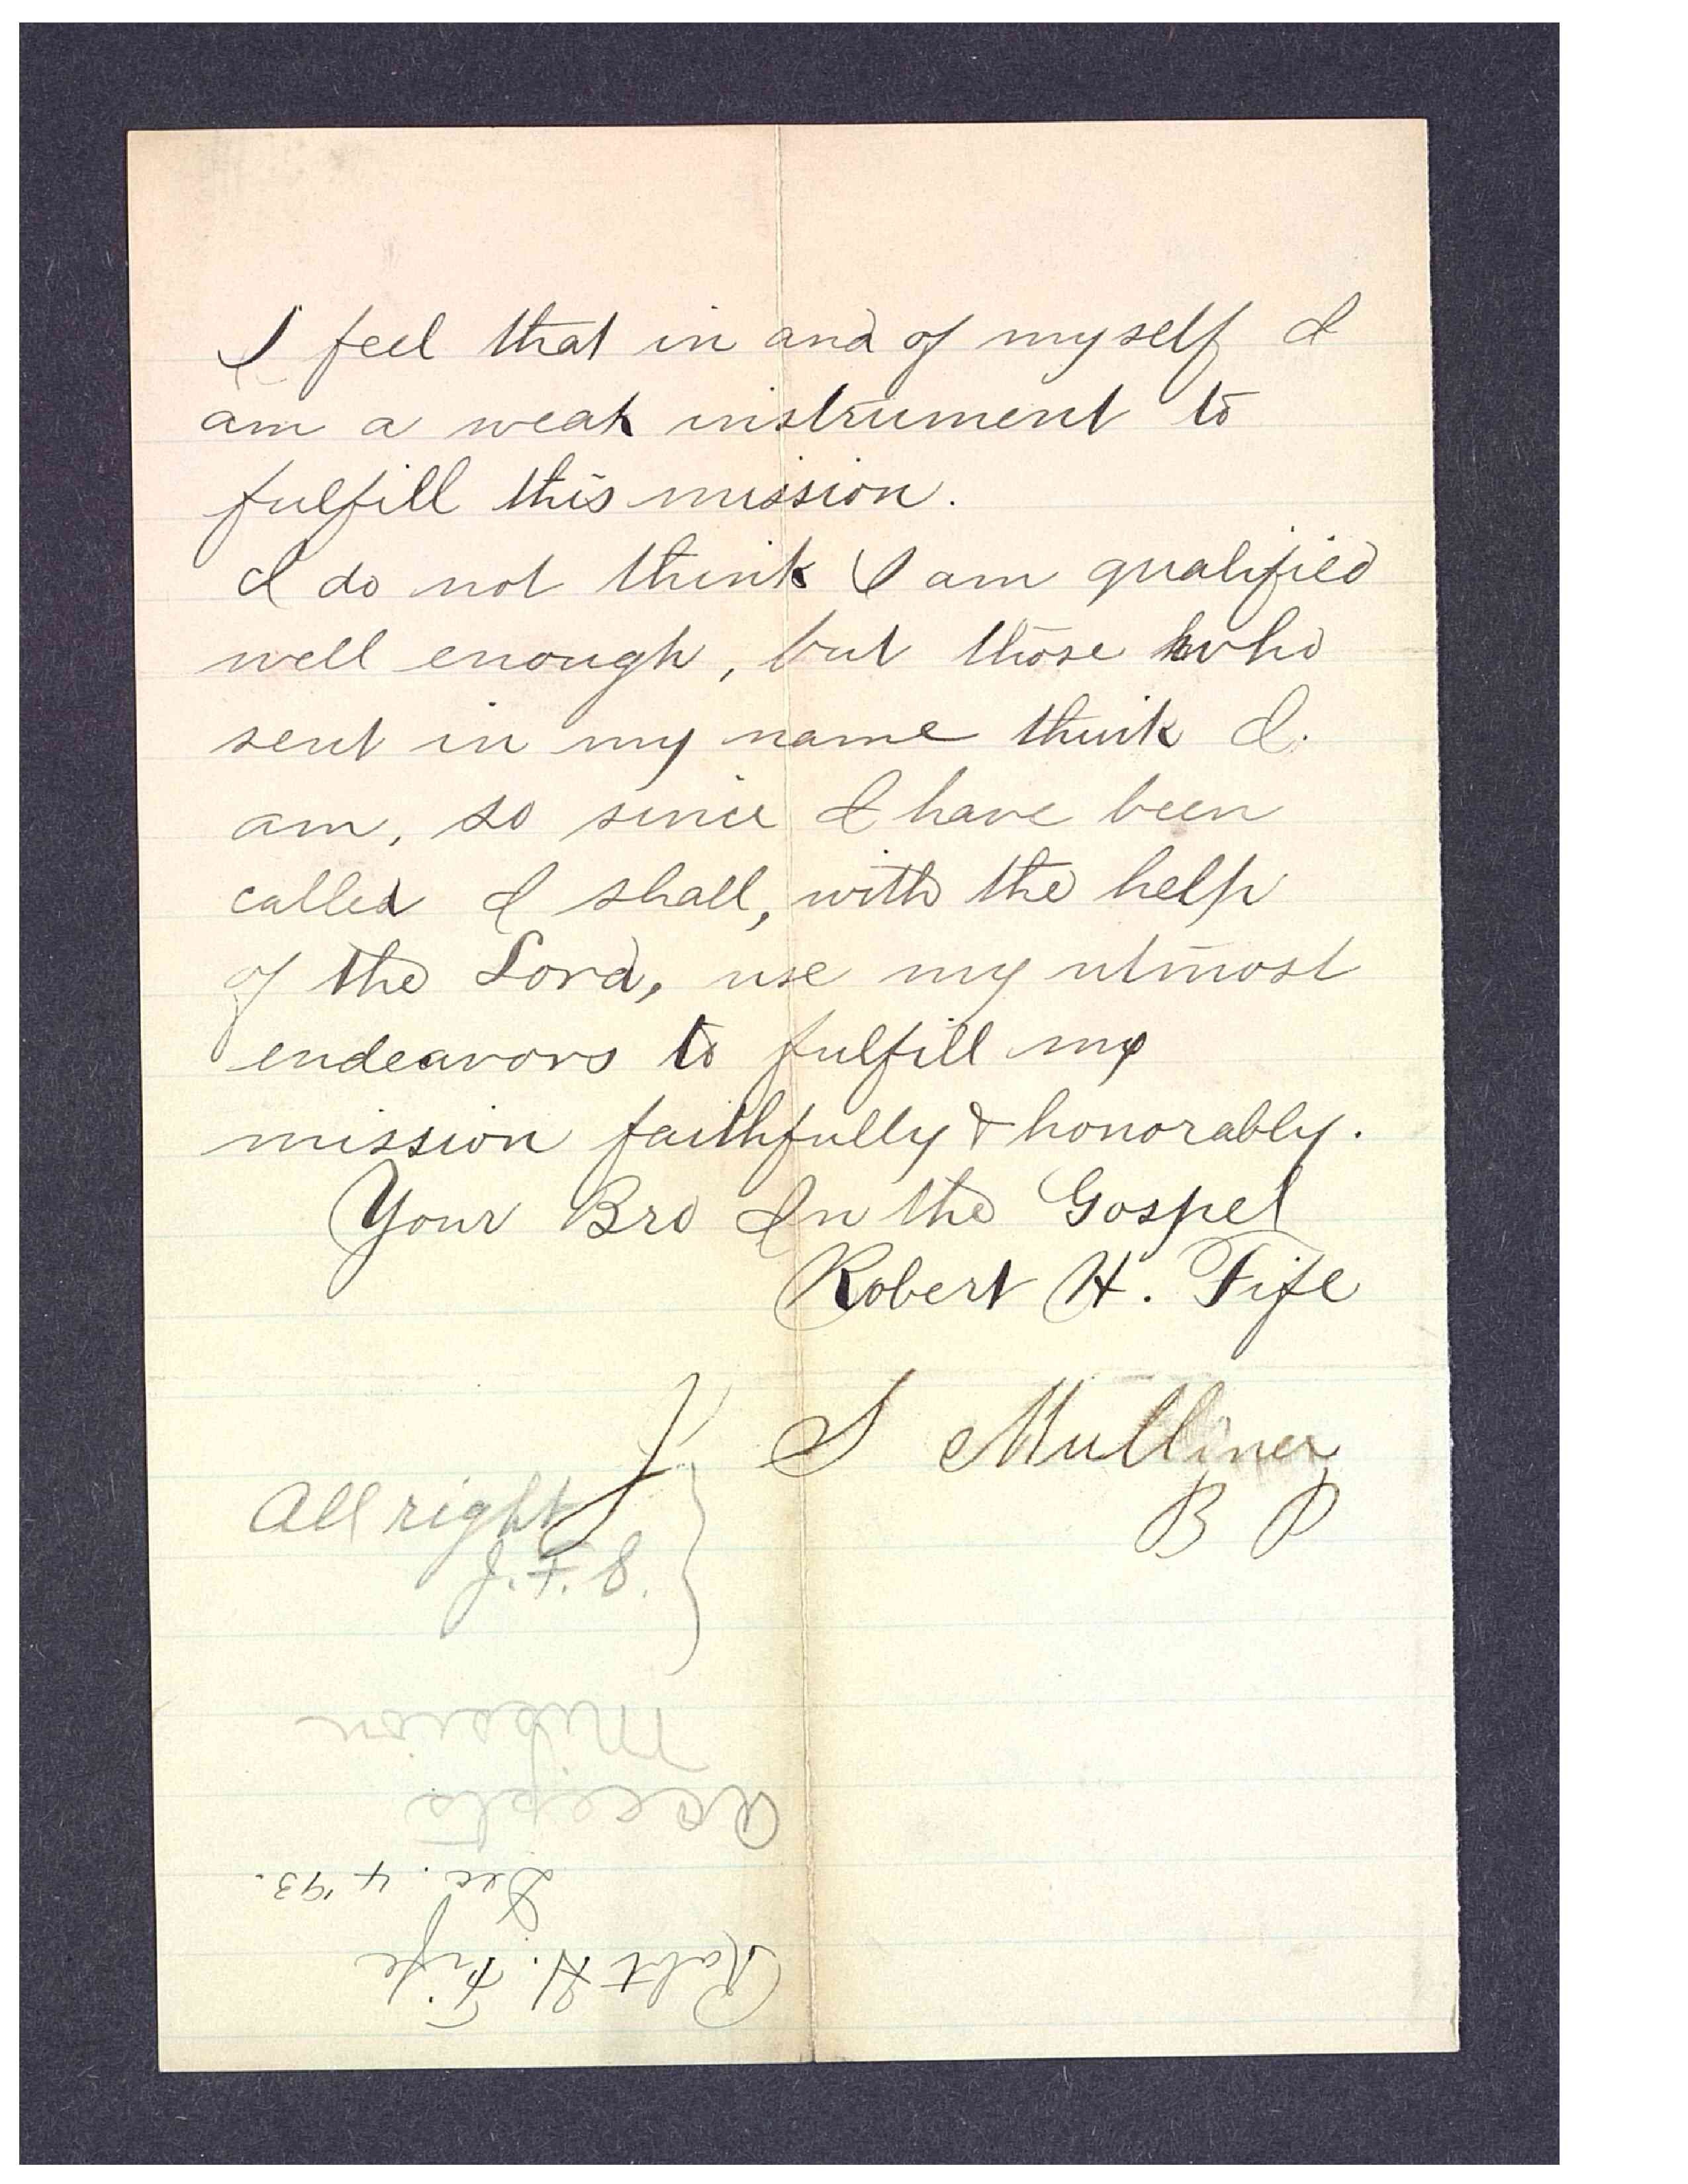 I feel that in and of myself I
am a weak instrument to
fulfill this mission.
I do not think I am qualified
well enough, but those who
sent in my name think I.
am, so since I have been
called I shall, with the help
of the Lord, use my utmost
endeavors to fulfill my
mission faithfully & honorably.
Your Bro In the Gospel
Robert H. Fife
J S Mulliner
B P
All right
J. F. S.
Robt H. Fife
Dec. 4 '93.
Accepts
Mission